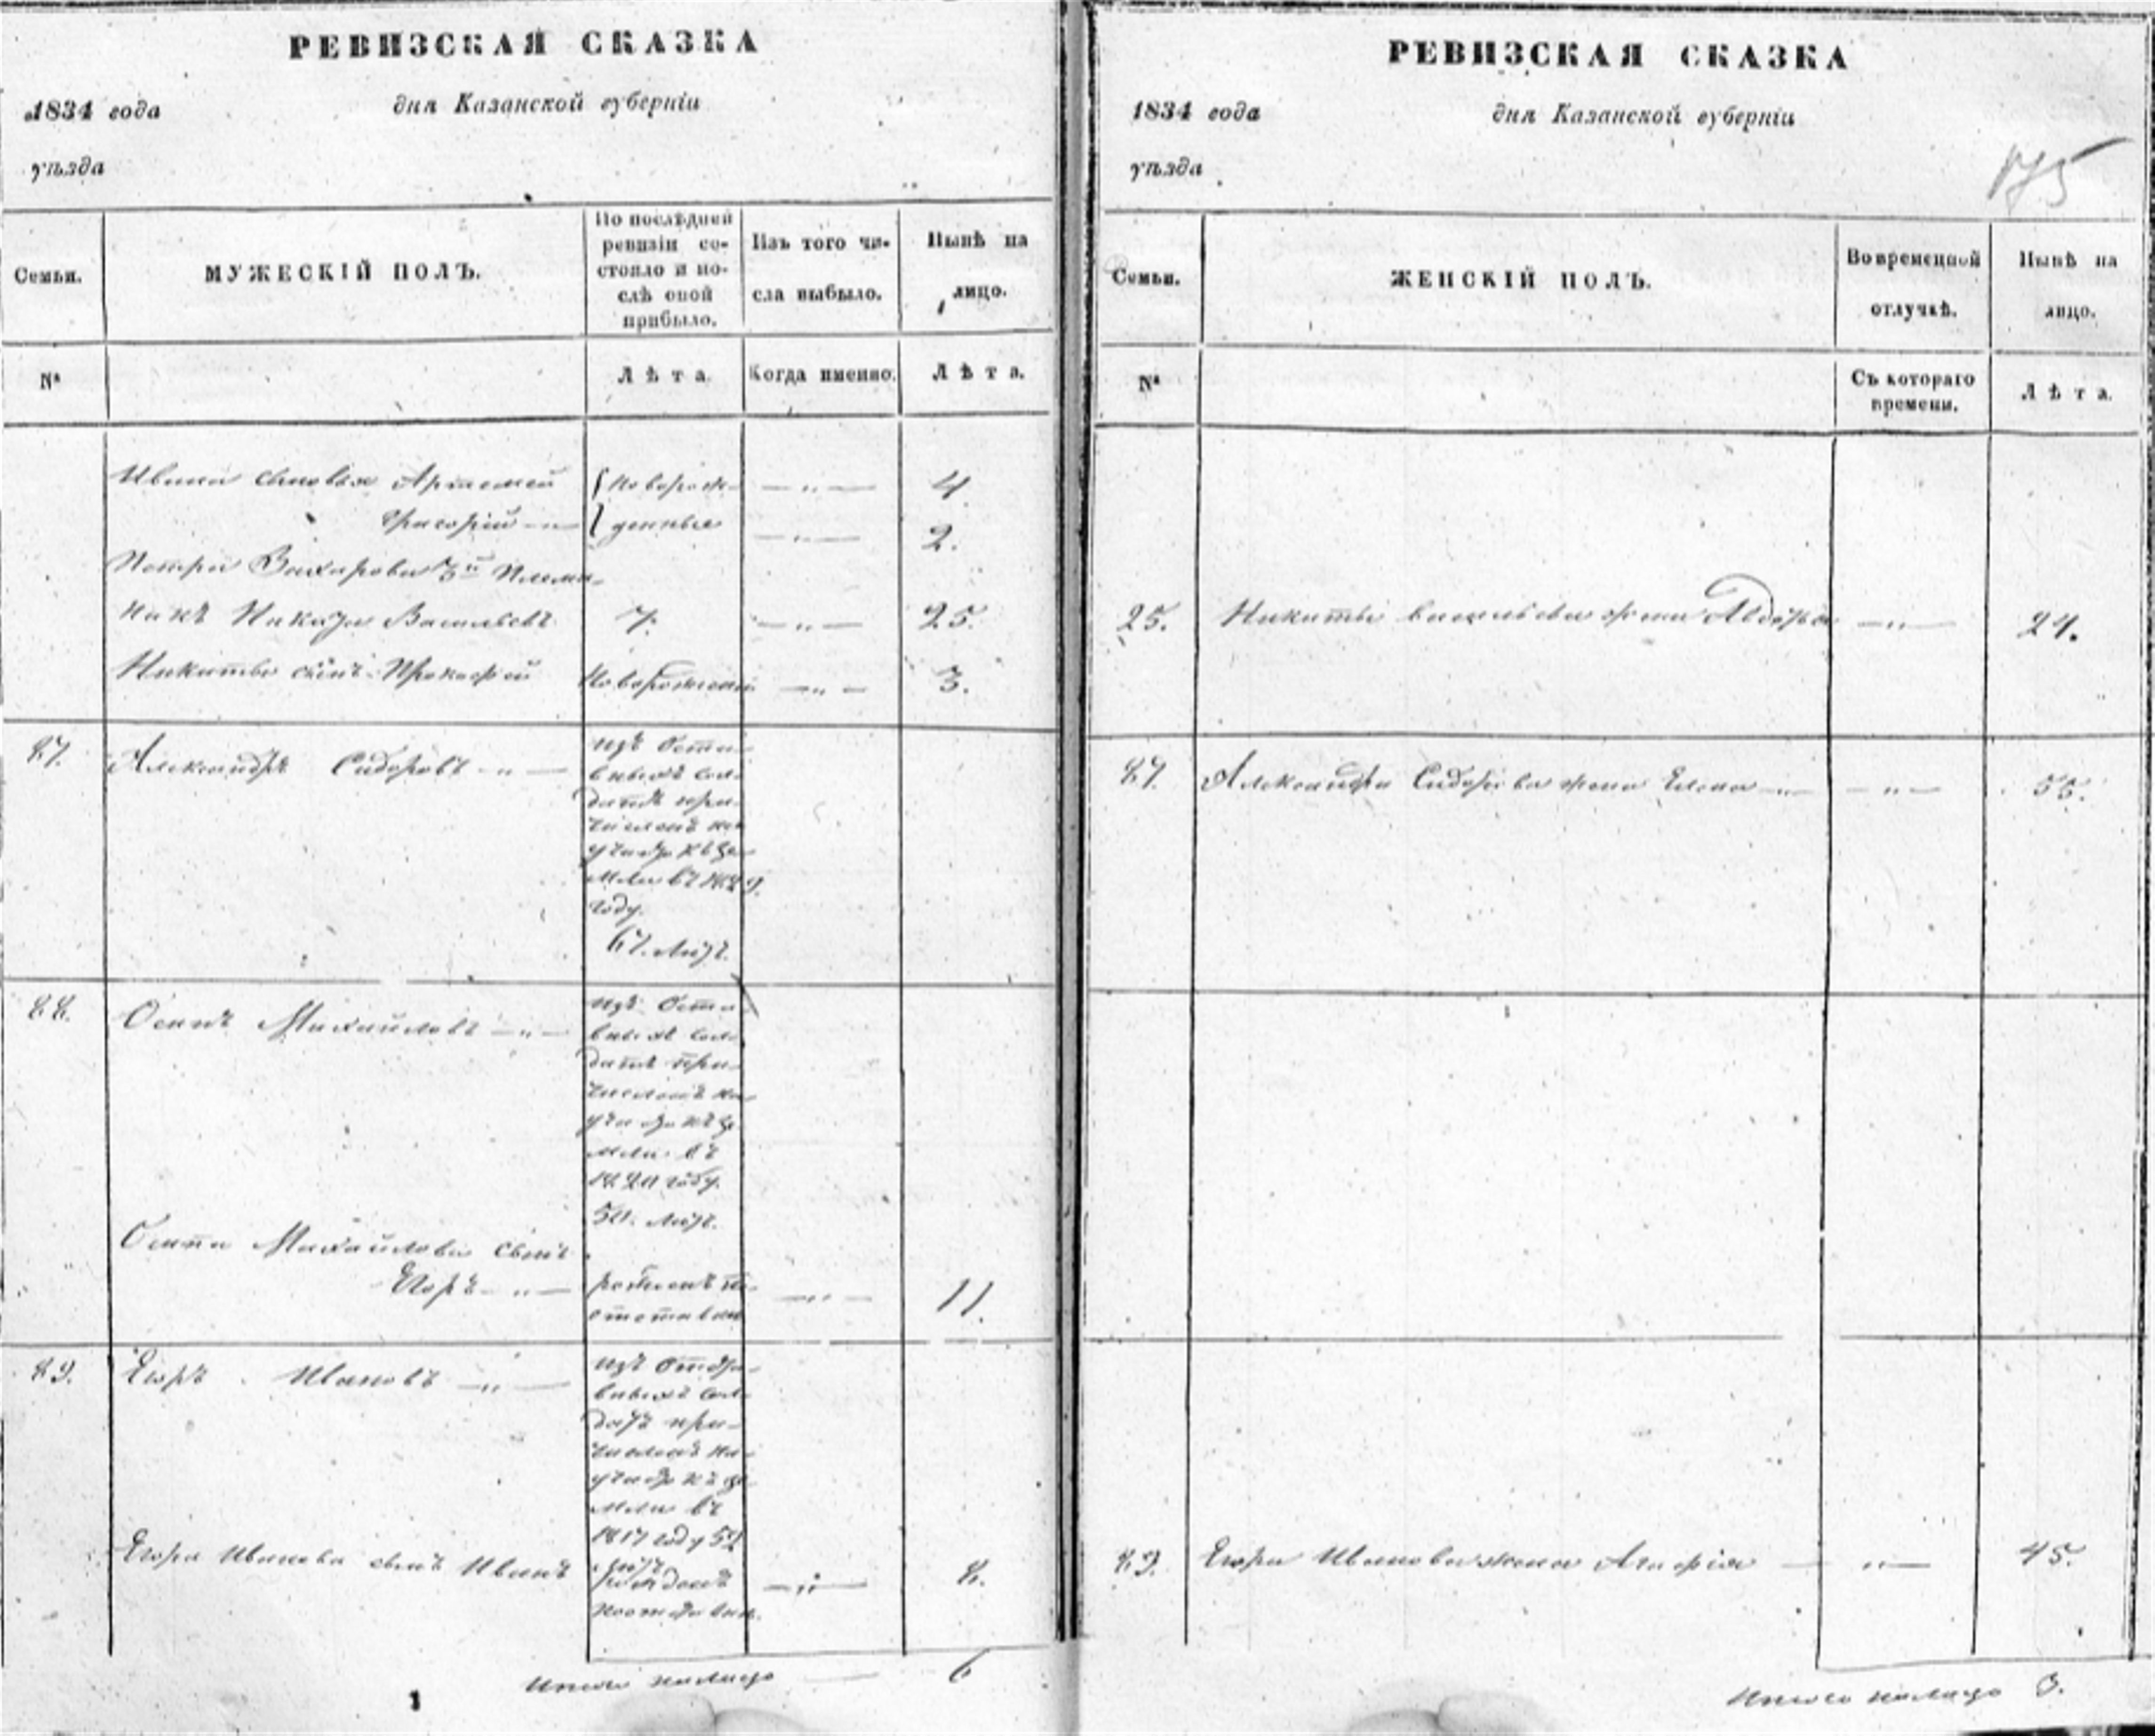 РЕВИЗСКАЯ СКАЗКА
1834 года дня Казанской губерніи
уѣзда
Семьи. МУЖЕСКІЙ ПОЛЪ. По послѣдней ревизіи состояло и послѣ оной прибыло. Изъ того числа выбыло. Нынѣ на лицо.
№ Лѣта. Когда именно. Лѣта.
Ивана сыновья Артемей { Новорож- —"— 4.
Григорій —"— { денные —"— 2.
Петра Захарова 3й Племя-
никъ Никита Васильевъ 7. —"— 25.
Никиты сынъ Прокофей Новорожденный —"— 3.
87. Александръ Сидоровъ —"—
изъ Отста-
вныхъ сол-
датъ при-
численъ на
участъ къ зе-
мли въ 1829.
году.
67. лѣтъ.
88. Осипъ Михайловъ —"—
изъ Отста-
вныхъ сол-
датъ при-
численъ на
участъ къ зе-
мли въ
1820 году.
50. лѣтъ.
Осипа Михайлова сынъ
Егоръ —"— рожденъ по —"— 11.
отставки
89. Егоръ Ивановъ —"—
изъ Отста-
вныхъ сол-
датъ при-
численъ на
участъ къ зе-
мли въ
1817 году 52
лѣтъ
Егора Иванова сынъ Иванъ рожденъ —"— 8.
по отставки.
Итого налицо — 6
РЕВИЗСКАЯ СКАЗКА
1834 года дня Казанской губерніи
уѣзда
175
Семьи. ЖЕНСКІЙ ПОЛЪ. Во временной отлучкѣ. Нынѣ на лицо.
№ Съ котораго времени. Лѣта.
25. Никиты васильева жена Авдотья —"— 24.
87. Александра Сидорова жена Елена —"— —"— 55.
89. Егора Иванова жена Агафія — "— 45.
Итого налицо 3.